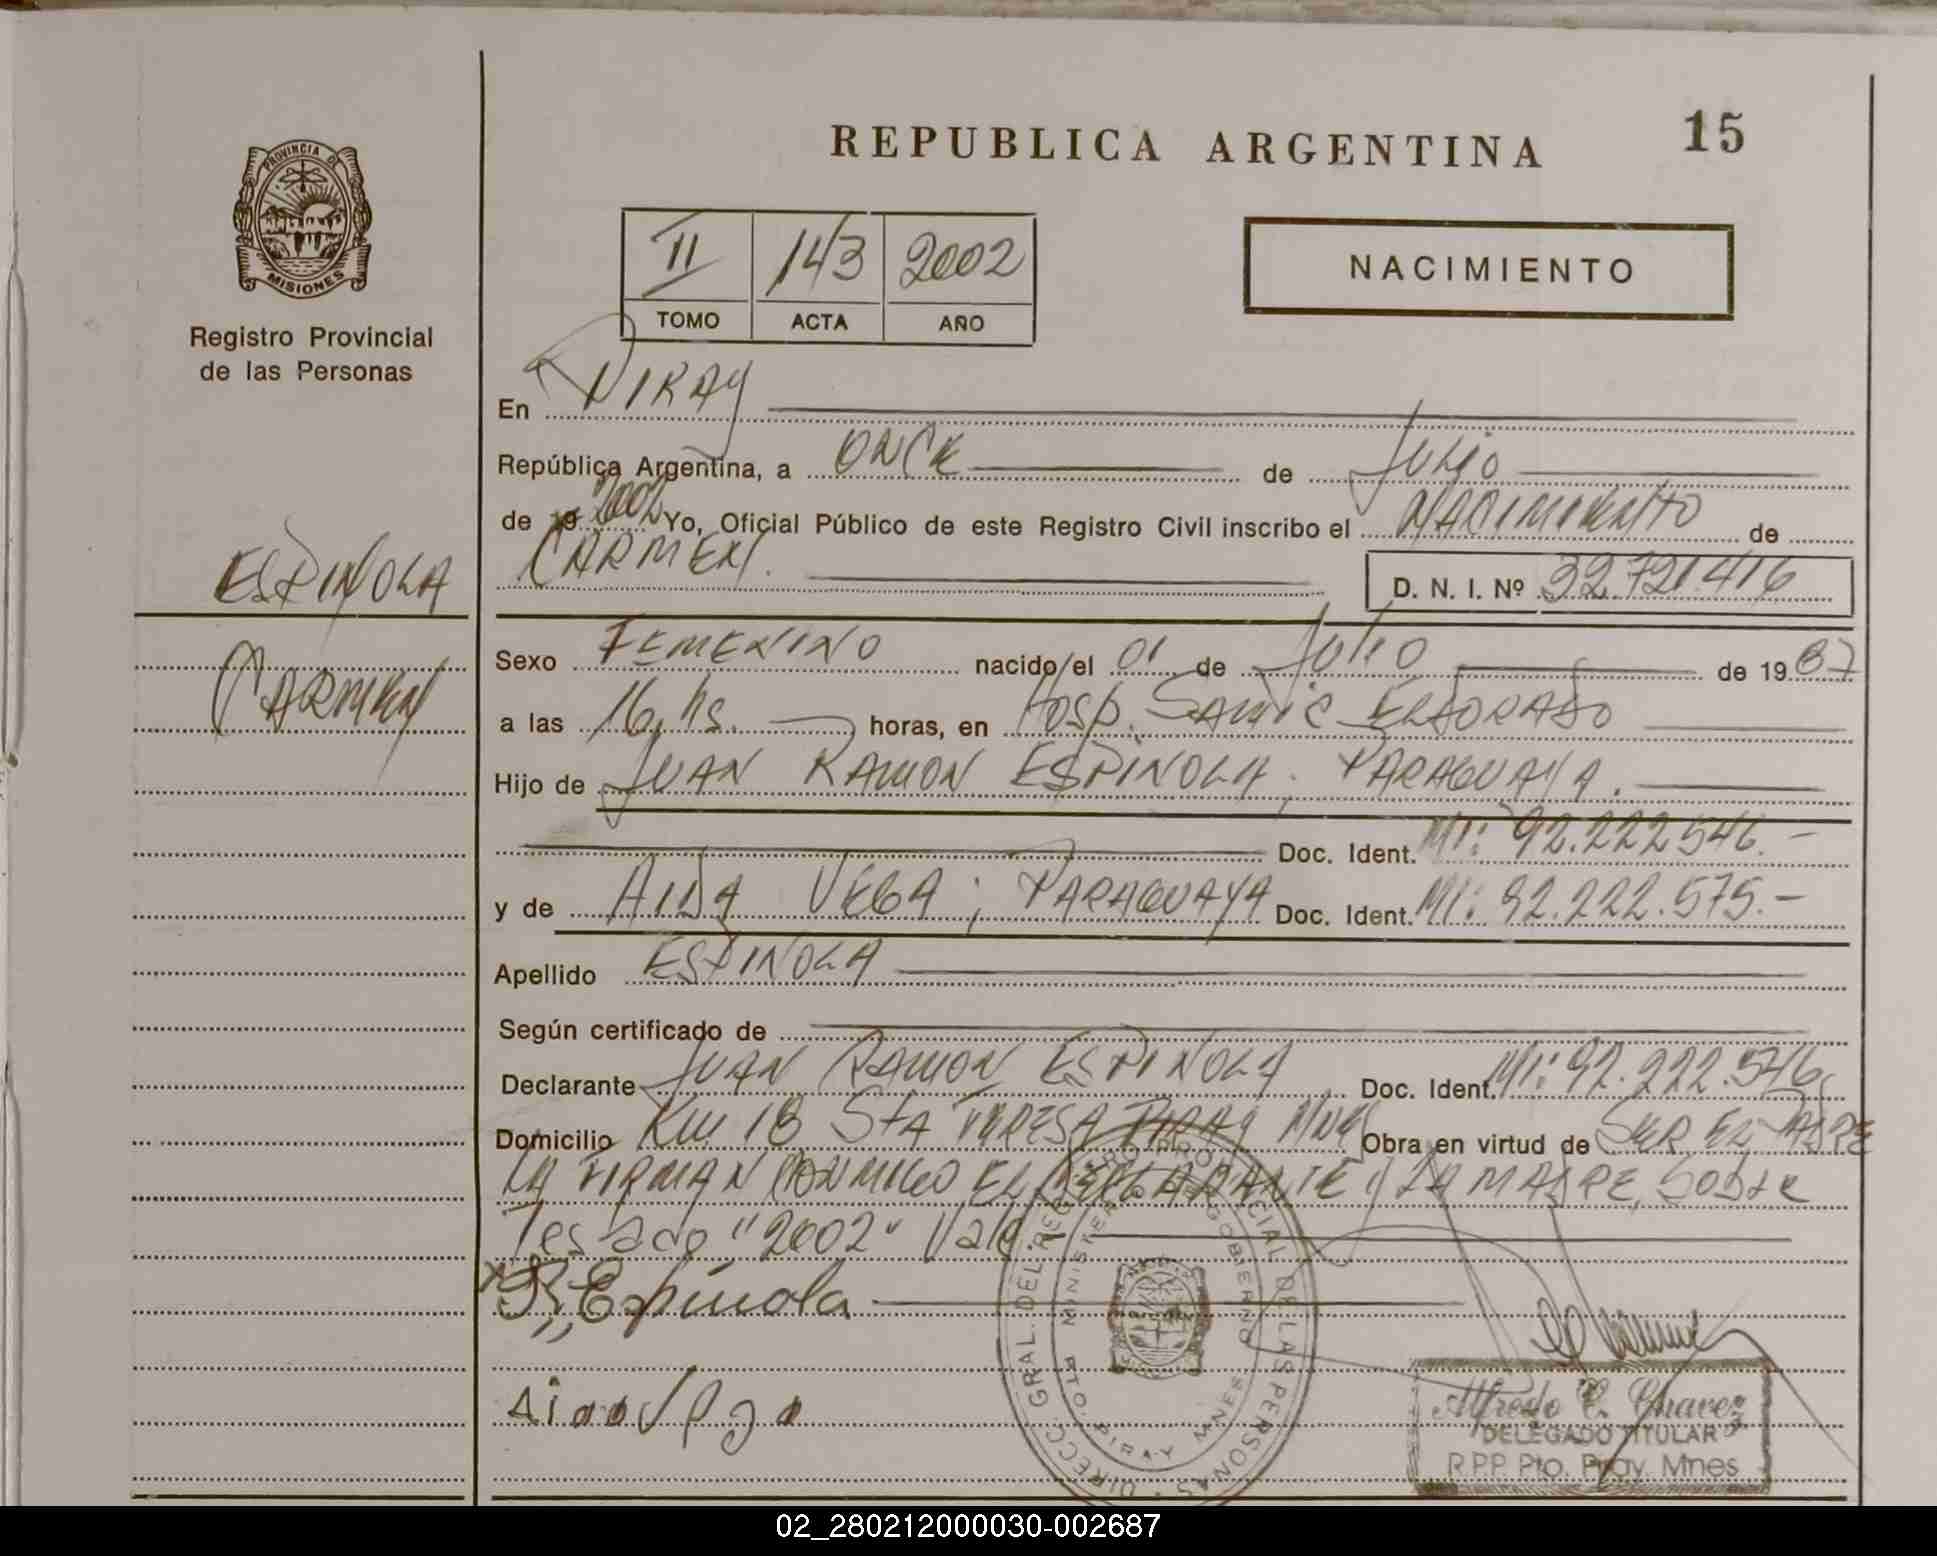 REPUBLICA ARGENTINA
15
PROVINCIA DE
MISIONES
Registro Provincial
de las Personas
II 143 2002
TOMO ACTA AÑO
NACIMIENTO
En PIRAY
República Argentina, a ONCE de JULIO
de 19 2002 Yo, Oficial Público de este Registro Civil inscribo el NACIMIENTO de
CARMEN.
D. N. I. Nº 32.721.416
ESPINOLA
CARMEN
Sexo FEMENINO nacido el 01 de JULIO de 19 87
a las 16 hs. horas, en Hosp. SAMIC ELDORADO
Hijo de JUAN RAMON ESPINOLA; PARAGUAYA.
Doc. Ident. MI: 92.222.546.-
y de AIDA VEGA; PARAGUAYA Doc. Ident. MI: 92.222.575.-
Apellido ESPINOLA
Según certificado de
Declarante JUAN RAMON ESPINOLA Doc. Ident. MI: 92.222.546
Domicilio Km 18 STA TERESA PIRAY MNES Obra en virtud de SER EL PADRE
LA FIRMAN CONMIGO EL DECLARANTE y LA MADRE, SOBRE
Testado "2002" Vale
Espínola
DIRECC. GRAL. DEL REGISTRO PROVINCIAL DE LAS PERSONAS
MINISTERIO DE GOBIERNO
PTO. PIRAY MNES
Alfredo C. Chavez
DELEGADO TITULAR
R.P.P. Pto. Piray Mnes
02_280212000030-002687